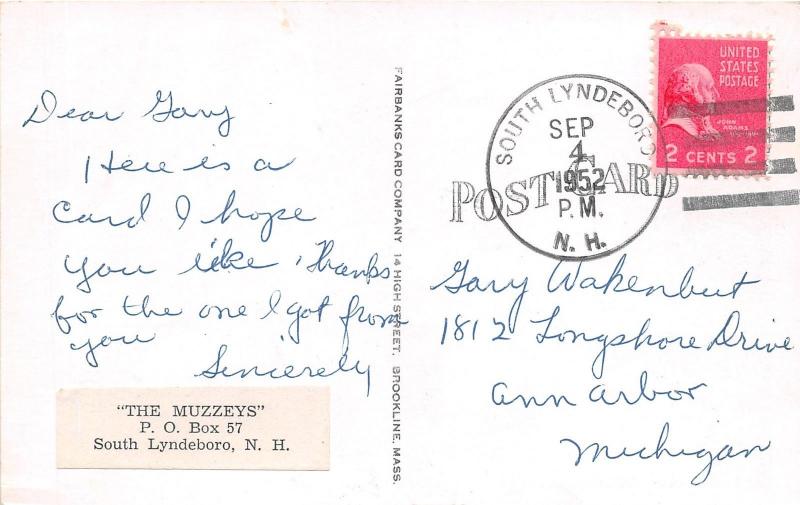 Dear Gary
Here is a
card I hope
you like. Thanks
for the one I got from
you
Sincerely
"THE MUZZEYS"
P. O. Box 57
South Lyndeboro, N. H.
FAIRBANKS CARD COMPANY 14 HIGH STREET, BROOKLINE, MASS.
POST CARD
SOUTH LYNDEBORO
SEP
4
1952
P.M.
N. H.
UNITED
STATES
POSTAGE
JOHN
ADAMS
2 CENTS 2
Gary Wakenbut
1812 Longshore Drive
ann arbor
Michigan